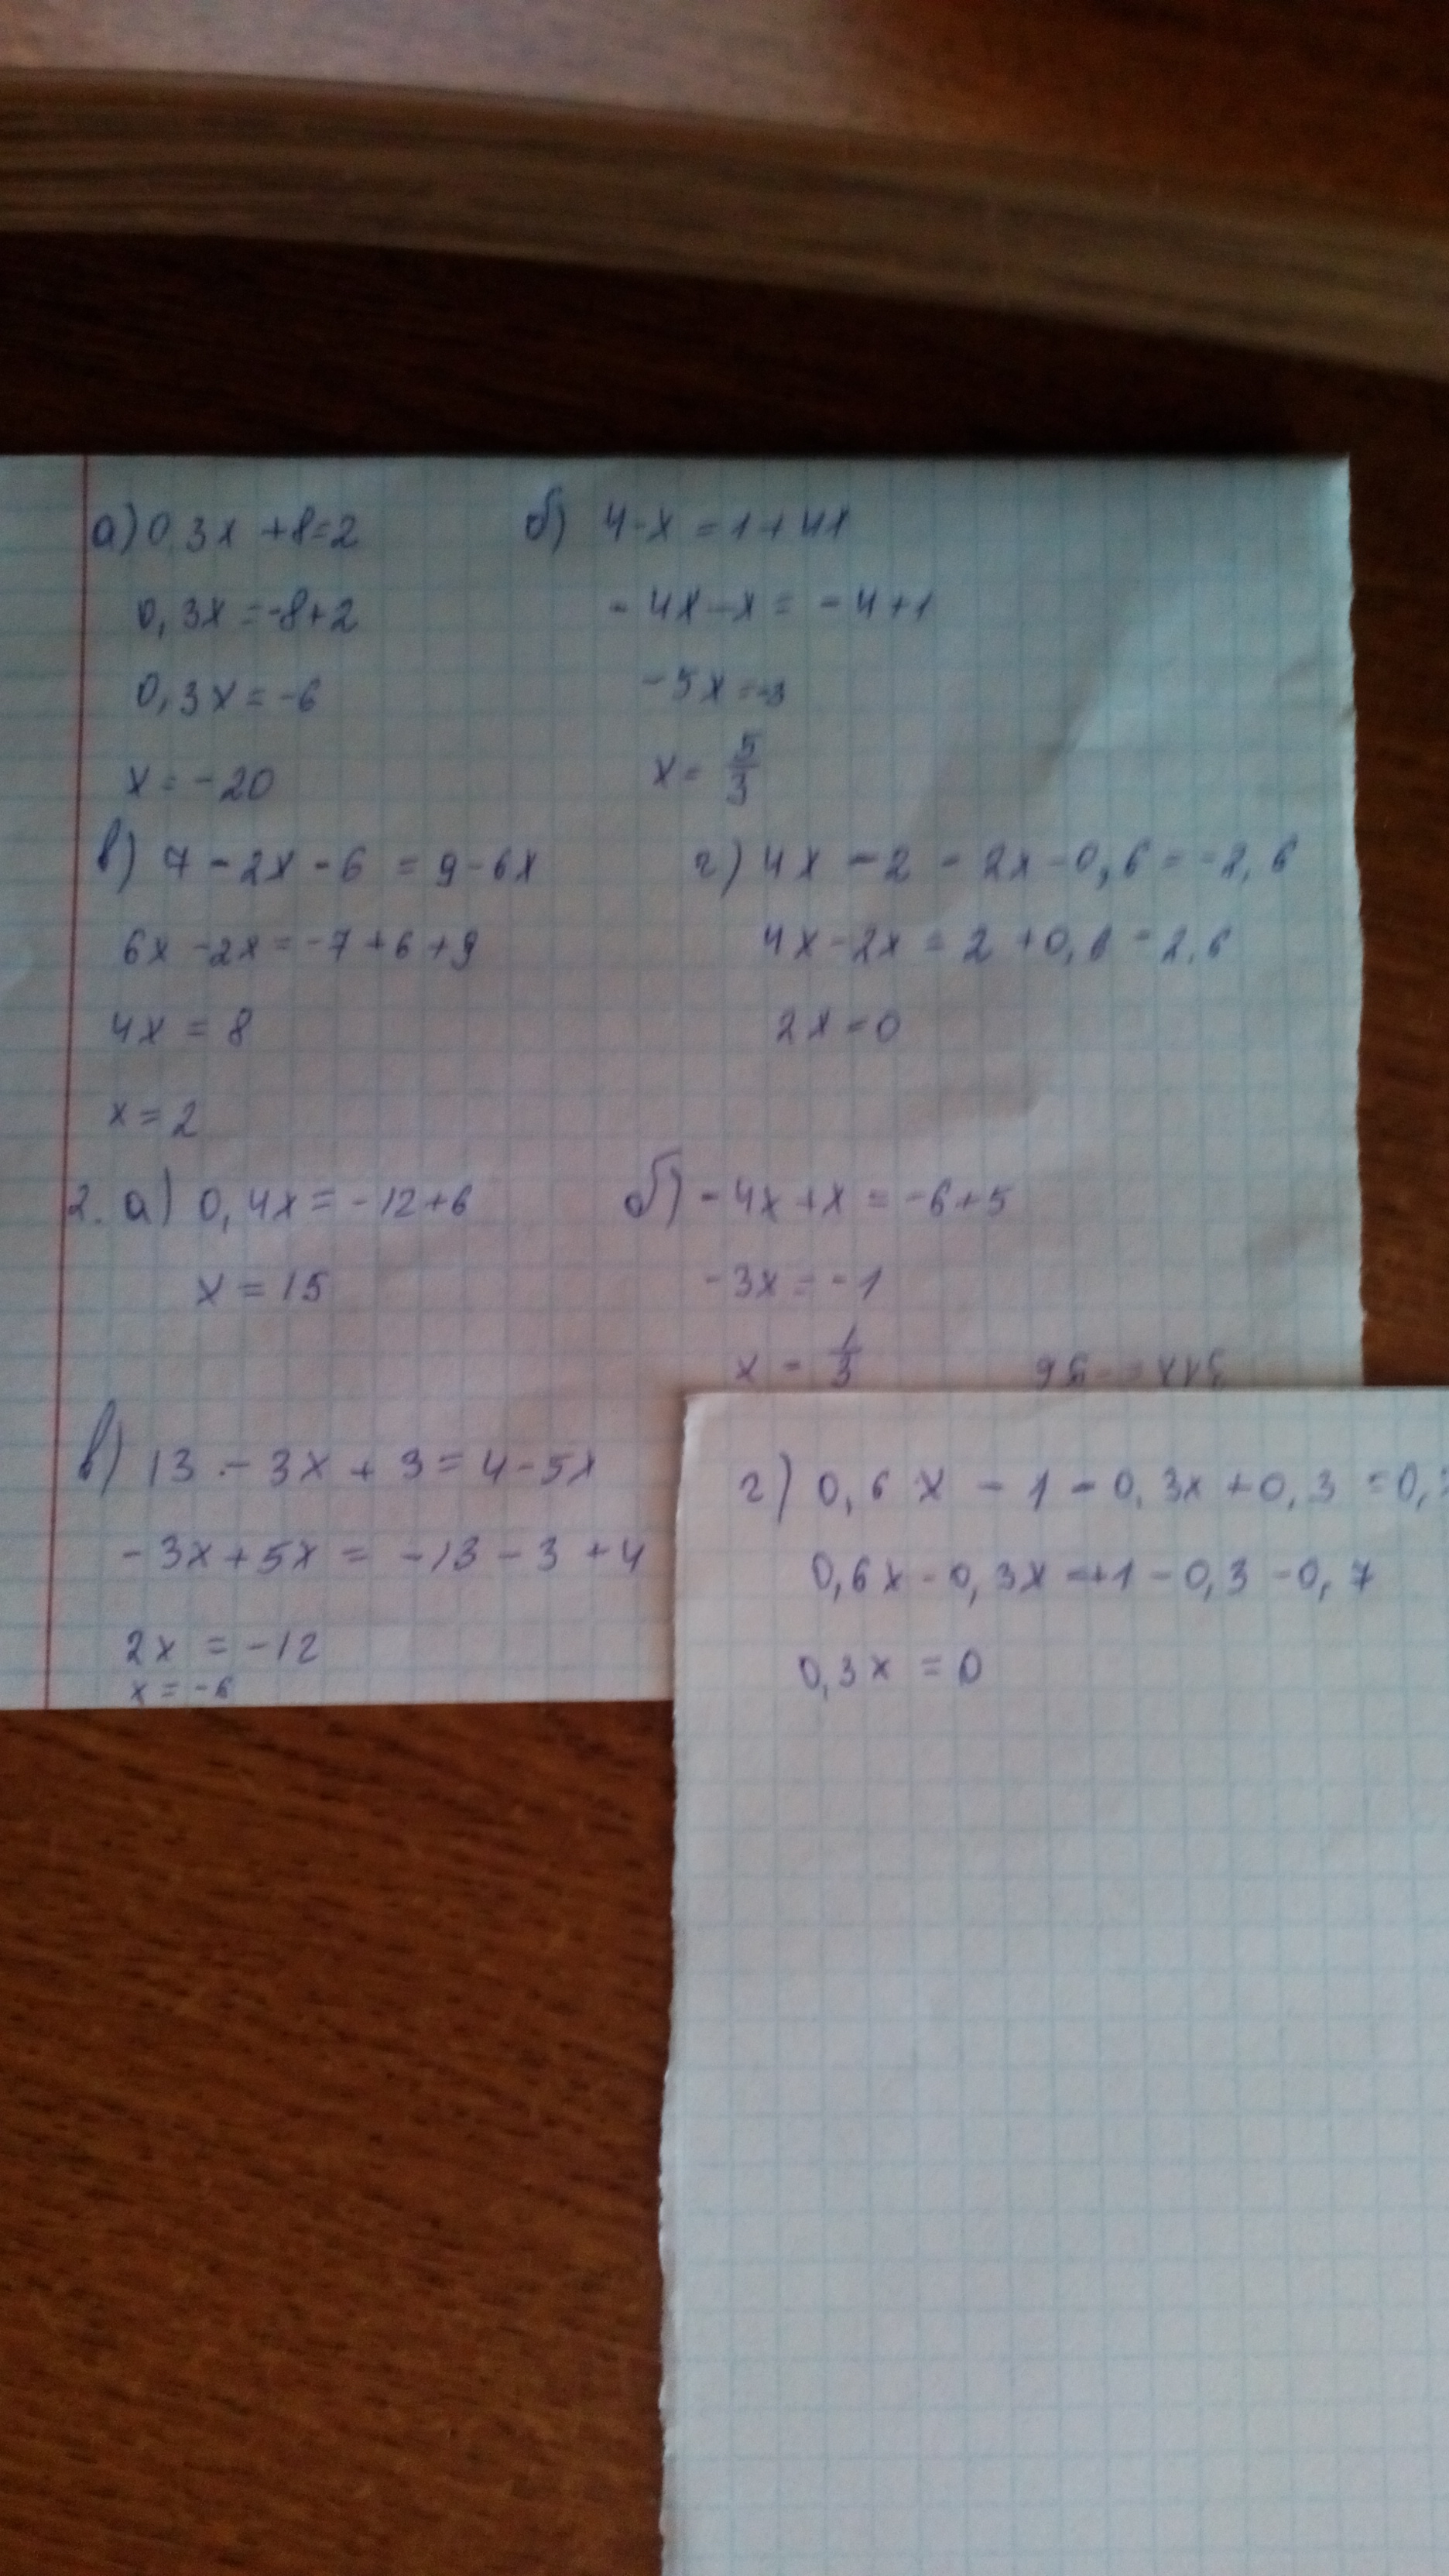 а) 0,3x + 8 = 2
0,3x = -8+2
0,3x = -6
x = -20
б) 4-x = 1+4x
-4x-x = -4+1
-5x = -3
x = 5/3
в) 7 - 2x - 6 = 9 - 6x
6x - 2x = -7 + 6 + 9
4x = 8
x = 2
г) 4x - 2 - 2x - 0,6 = -2,6
4x - 2x = 2 + 0,6 - 2,6
2x = 0
2. а) 0,4x = -12+6
x = 15
б) -4x + x = -6+5
-3x = -1
x = 1/3
в) 13 - 3x + 3 = 4-5x
-3x + 5x = -13 - 3 + 4
2x = -12
x = -6
г) 0,6x - 1 - 0,3x + 0,3 = 0,
0,6x - 0,3x = +1 - 0,3 - 0,7
0,3x = 0